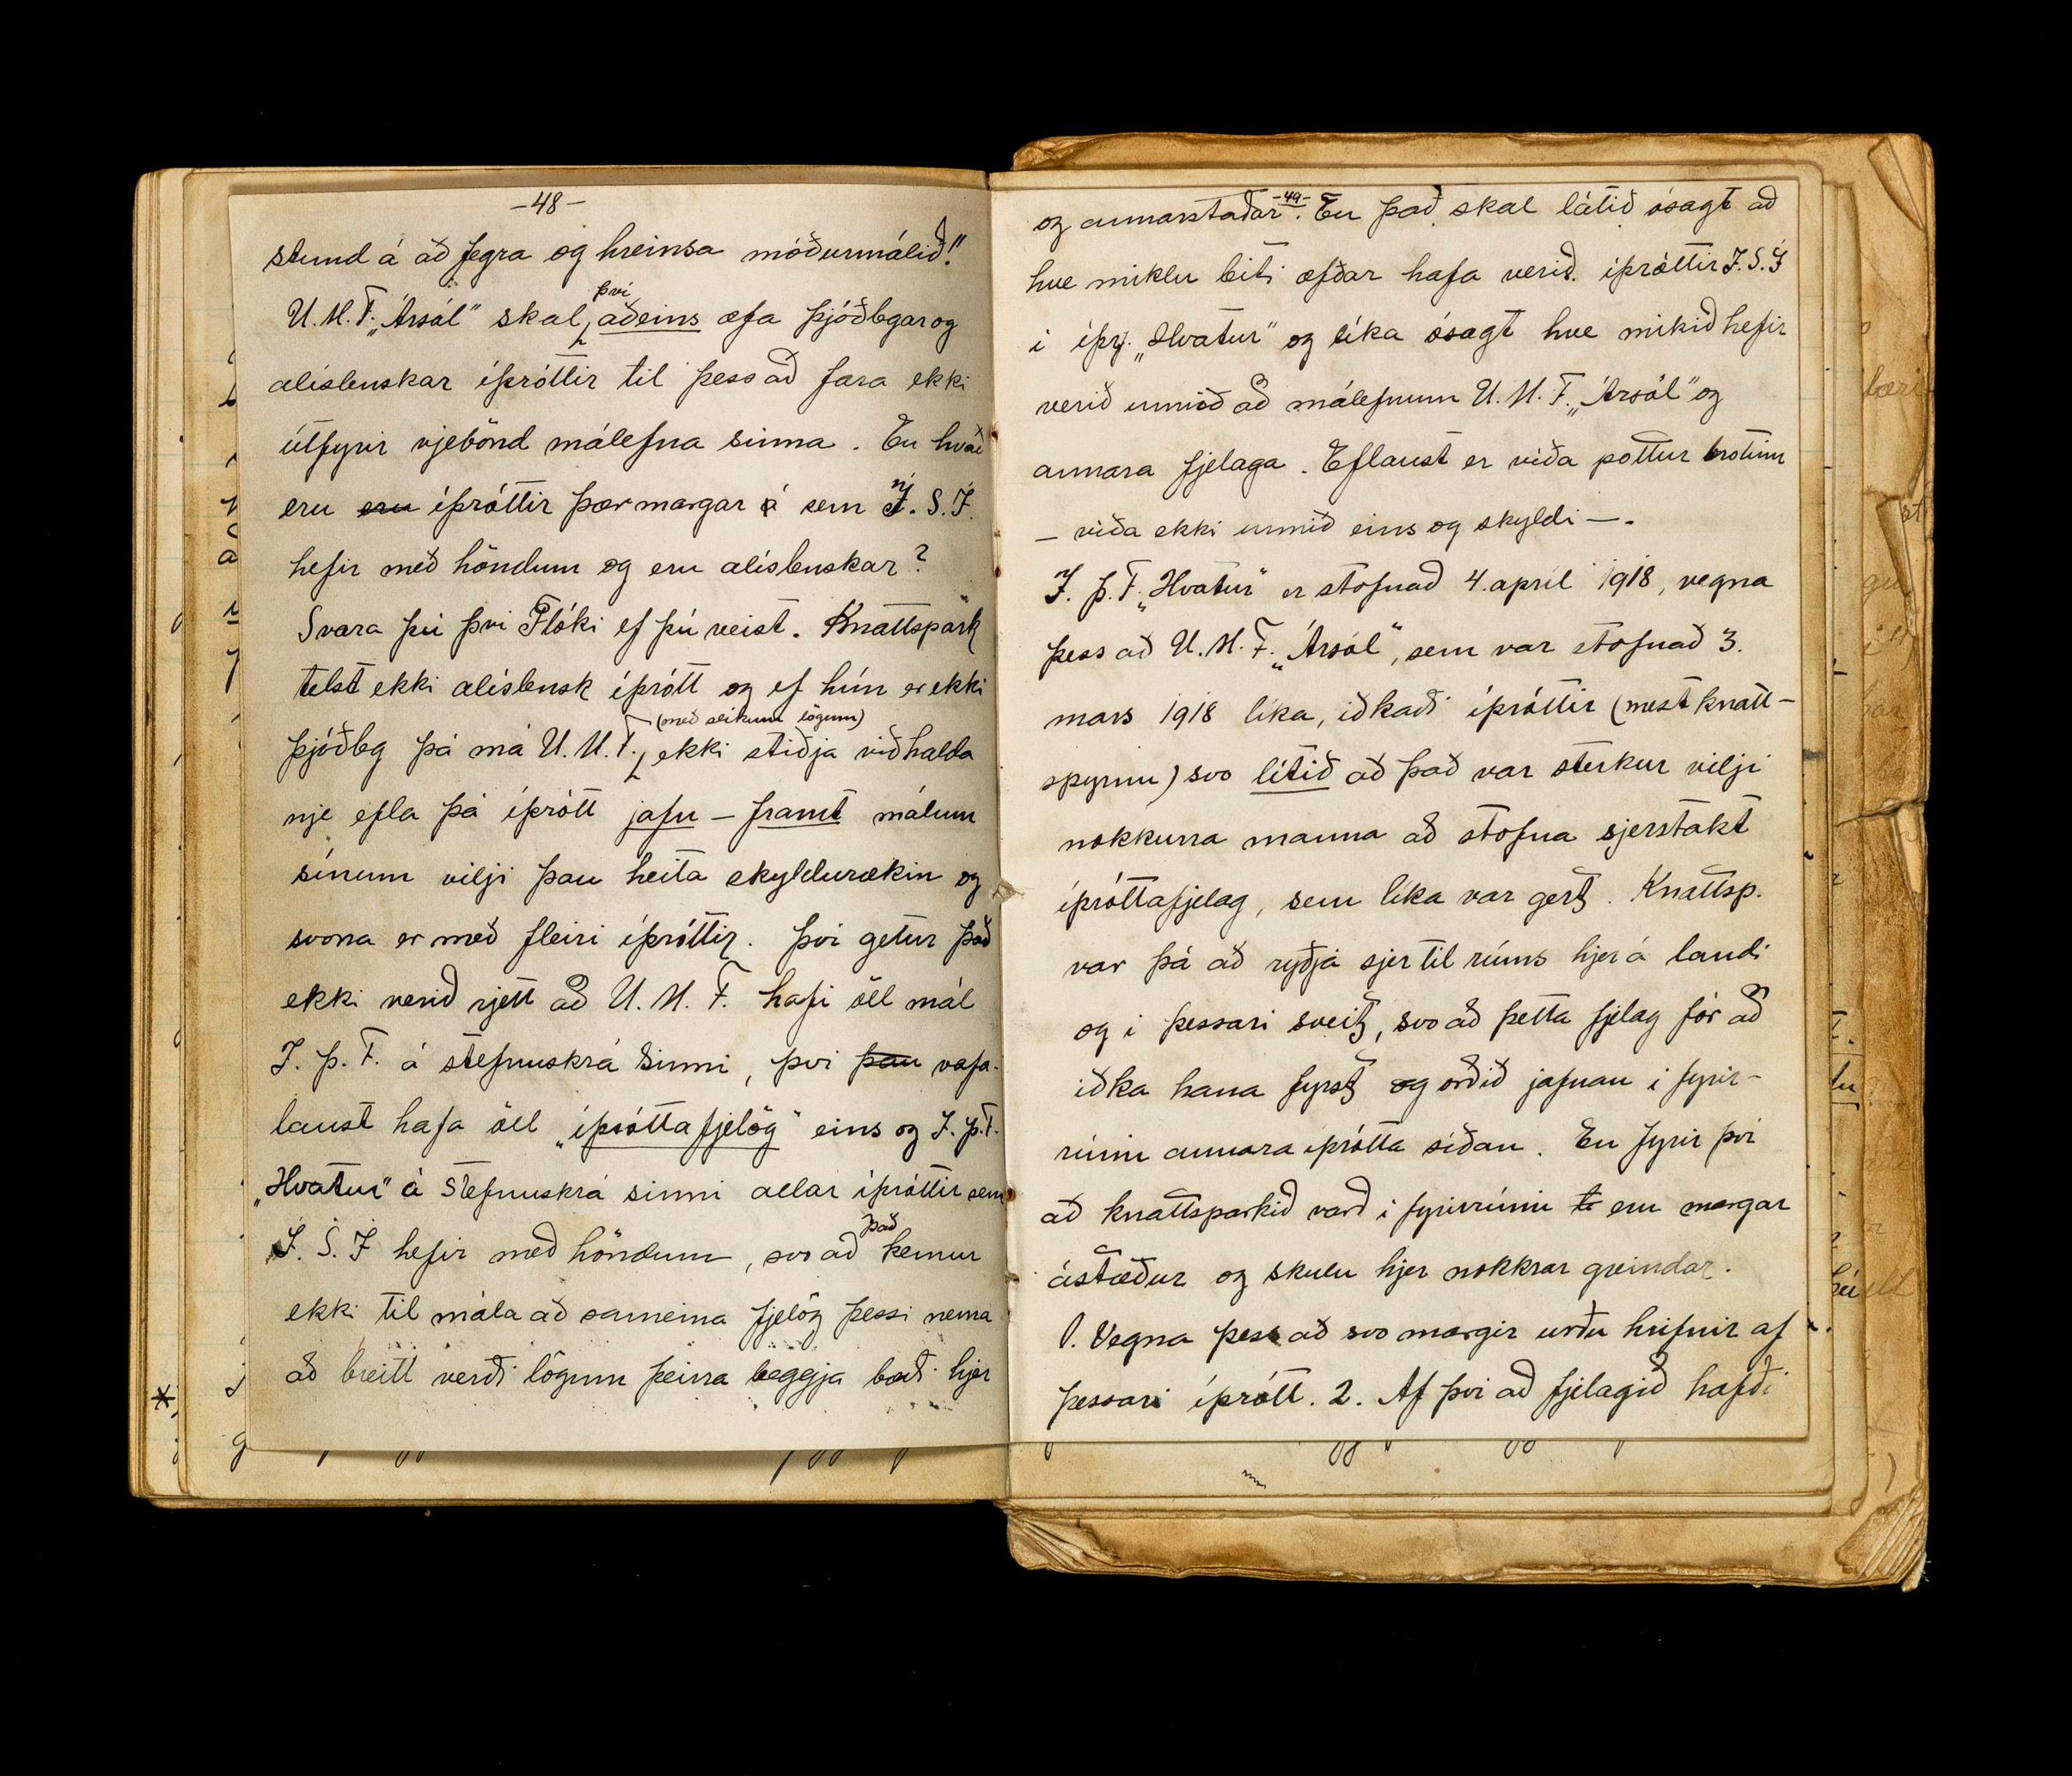 -48-
stund á að fegra og hreinsa móðurmálið!"
U.M.F. „Ársól" skal því aðeins æfa þjóðlegar og
alíslenskar íþróttir til þess að fara ekki
útfyrir vjebönd málefna sinna. En hvað
eru eru íþróttir þær margar á sem Í.S.Í.
hefir með höndum og eru alíslenskar?
Svara þú því Flóki ef þú veist. Knattspark
telst ekki alíslensk íþrótt og ef hún er ekki
þjóðleg þá má U.M.F. (með slíkum lögum) ekki stiðja við halda
nje efla þá íþrótt jafn - framt málum
sínum vilji þau heita skyldurækin og
svona er með fleiri íþróttir. Því getur það
ekki verið rjett að U.M.F. hafi öll mál
Í.Þ.F. á stefnuskrá sinni, því þau vafa-
laust hafa öll „íþróttafjelög" eins og Í.Þ.F.
„Hvatur" á stefnuskrá sinni allar íþróttir sem
Í.S.Í hefir með höndum, svo að það kemur
ekki til mála að sameina fjelög þessi nema
að breitt verði lögum þeirra beggja bæði hjer
-49-
og annarstaðar. En það skal látið ósagt að
hve miklu leiti æfðar hafa verið íþróttir Í.S.Í
í íþrf. „Hvatur" og líka ósagt hve mikið hefir
verið unnið að málefnum U.M.F. „Ársól" og
annara fjelaga. Eflaust er víða pottur brotinn
- víða ekki unnið eins og skyldi -.
Í.Þ.F. „Hvatur" er stofnað 4. apríl 1918, vegna
þess að U.M.F. „Ársól", sem var stofnað 3.
mars 1918 líka, iðkaði íþróttir (mest knatt-
spyrnu) svo lítið að það var sterkur vilji
nokkurra manna að stofna sjerstakt
íþróttafjelag, sem líka var gert. Knattsp.
var þá að ryðja sjer til rúms hjer á landi
og í þessari sveit, svo að þetta fjelag fór að
iðka hana fyrst og orðið jafnan í fyrir-
rúmi annara íþrótta síðan. En fyrir því
að knattsparkið varð í fyrirrúmi eru margar
ástæður og skulu hjer nokkrar greindar.
1. Vegna þess að svo margir urðu hrifnir af
þessari íþrótt. 2. Af því að fjelagið hafði